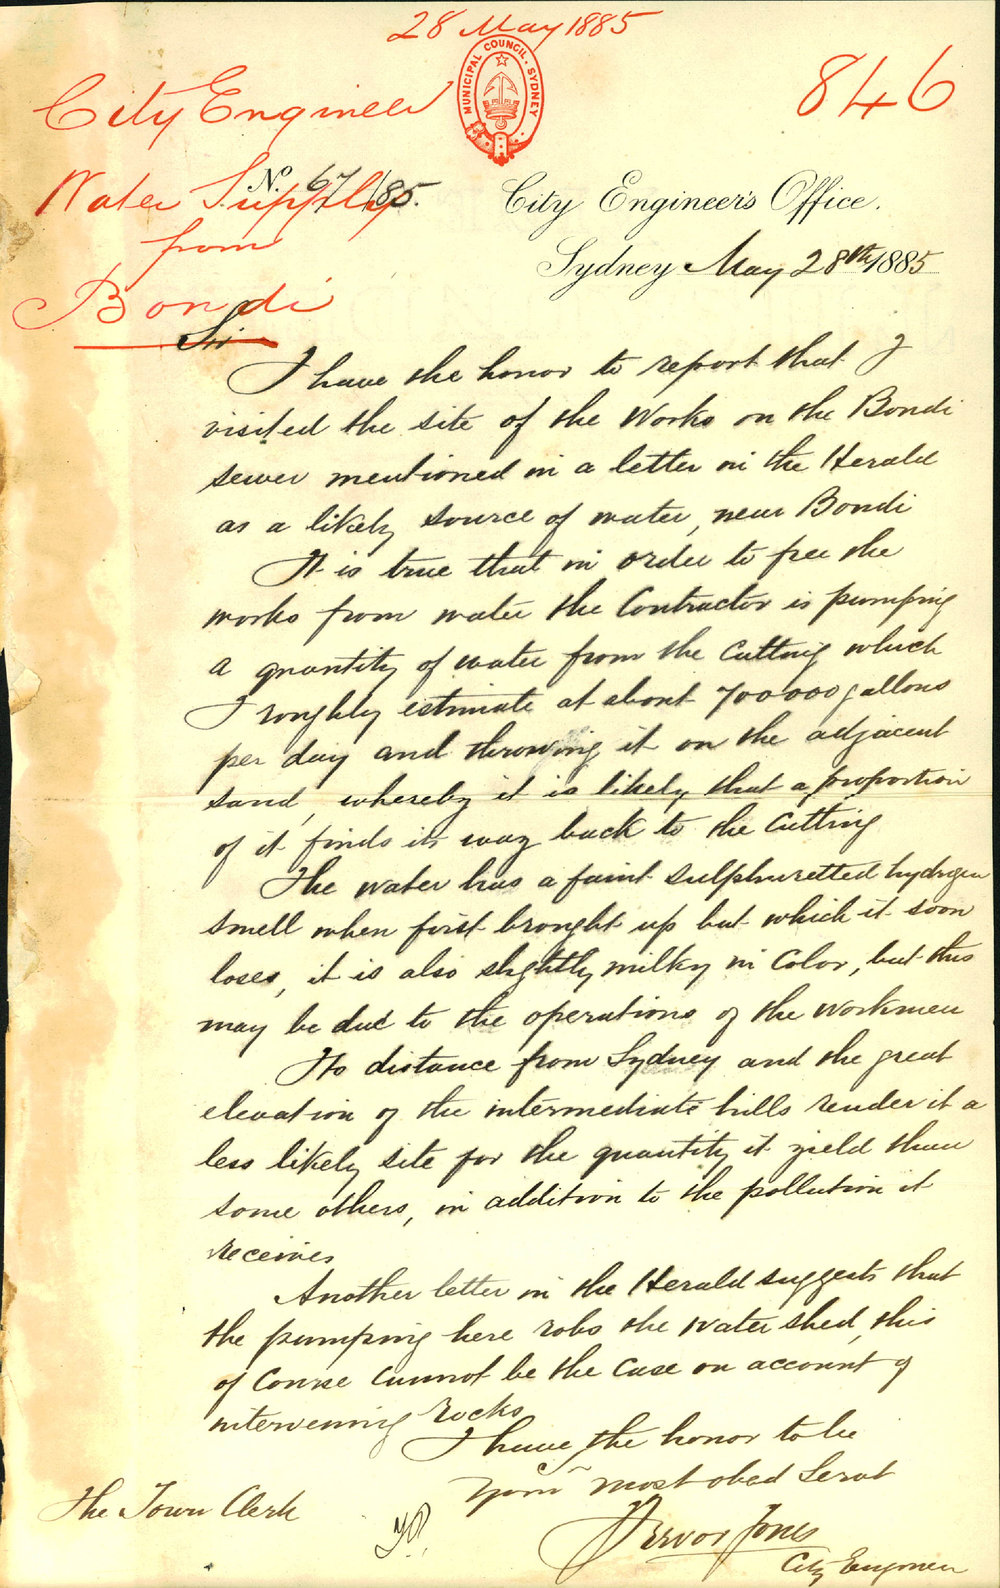 28 May 1885
846
MUNICIPAL COUNCIL. SYDNEY
City Engineer
Water Supply
from
Bondi
No. 67/85.
City Engineer's Office.
Sydney May 28th 1885
Sir
I have the honor to report that I
visited the site of the Works on the Bondi
sewer mentioned in a letter in the Herald
as a likely source of water, near Bondi
It is true that in order to free the
works from water the Contractor is pumping
a quantity of water from the Cutting which
I roughly estimate at about 700000 gallons
per day and throwing it on the adjacent
sand, whereby it is likely that a proportion
of it finds its way back to the Cutting
The water has a faint sulphuretted hydrogen
smell when first brought up but which it soon
loses, it is also slightly milky in Color, but this
may be due to the operations of the workmen
Its distance from Sydney and the great
elevation of the intermediate hills render it a
less likely site for the quantity it yield than
some others, in addition to the pollution it
receives
Another letter in the Herald suggests that
the pumping here robs the water shed, this
of Course Cannot be the Case on account of
intervening rocks
I have the honor to be
Your most obed Servt
Trevor Jones
City Engineer
The Town Clerk